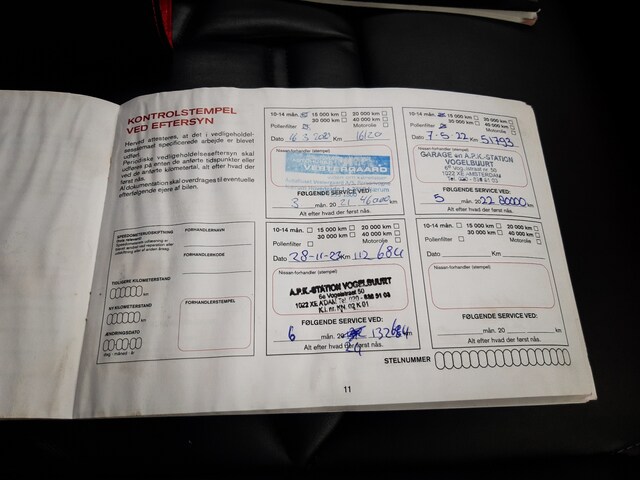 KONTROLSTEMPEL
VED EFTERSYN
Herved attesteres, at det i vedligeholdel-
sesskemaet specificerede arbejde er blevet
udført.
Periodiske vedligeholdelseseftersyn skal
udføres på ennen de anførte tidspunkter eller
ved de anførte kilometertal, alt efter hvad der
først nås.
Al dokumentation skal overdrages til eventuelle
efterfølgende ejere af bilen.
SPEEDOMETERUDSKIFTNING
FORHANDLERNAVN
FORHANDLERKODE
TIDLIGERE KILOMETERSTAND
km
NY KILOMETERSTAND
km
ÆNDRINGSDATO
dag - måned - år
FORHANDLERSTEMPEL
10-14 mån. 15 000 km 20 000 km
30 000 km 40 000 km
Pollenfilter Motorolie
Dato Km 16120
Nissan-forhandler (stempel)
VESTERGAARD
FØLGENDE SERVICE VED:
3 mån. 20 21 46000 km
Alt efter hvad der først nås.
10-14 mån. 15 000 km 20 000 km
30 000 km 40 000 km
Pollenfilter Motorolie
Dato 7-5-22 Km 51793
Nissan-forhandler (stempel)
GARAGE en A.P.K.-STATION
VOGELBUURT
6e Vogelstraat nr. 50
1022 XE AMSTERDAM
FØLGENDE SERVICE VED:
5 mån. 20 22 80000 km
Alt efter hvad der først nås.
10-14 mån. 15 000 km 20 000 km
30 000 km 40 000 km
Pollenfilter Motorolie
Dato 28-11-23 Km 112 684
Nissan-forhandler (stempel)
A.P.K.-STATION VOGELBUURT
6e Vogelstraat 50
1022 XE A'DAM Tel. 020
K.I. nr. KN. 02 K 01
FØLGENDE SERVICE VED:
6 mån. 20 24 132684 km
Alt efter hvad der først nås.
10-14 mån. 15 000 km 20 000 km
30 000 km 40 000 km
Pollenfilter Motorolie
Dato Km
Nissan-forhandler (stempel)
FØLGENDE SERVICE VED:
mån. 20 km
Alt efter hvad der først nås.
STELNUMMER
11